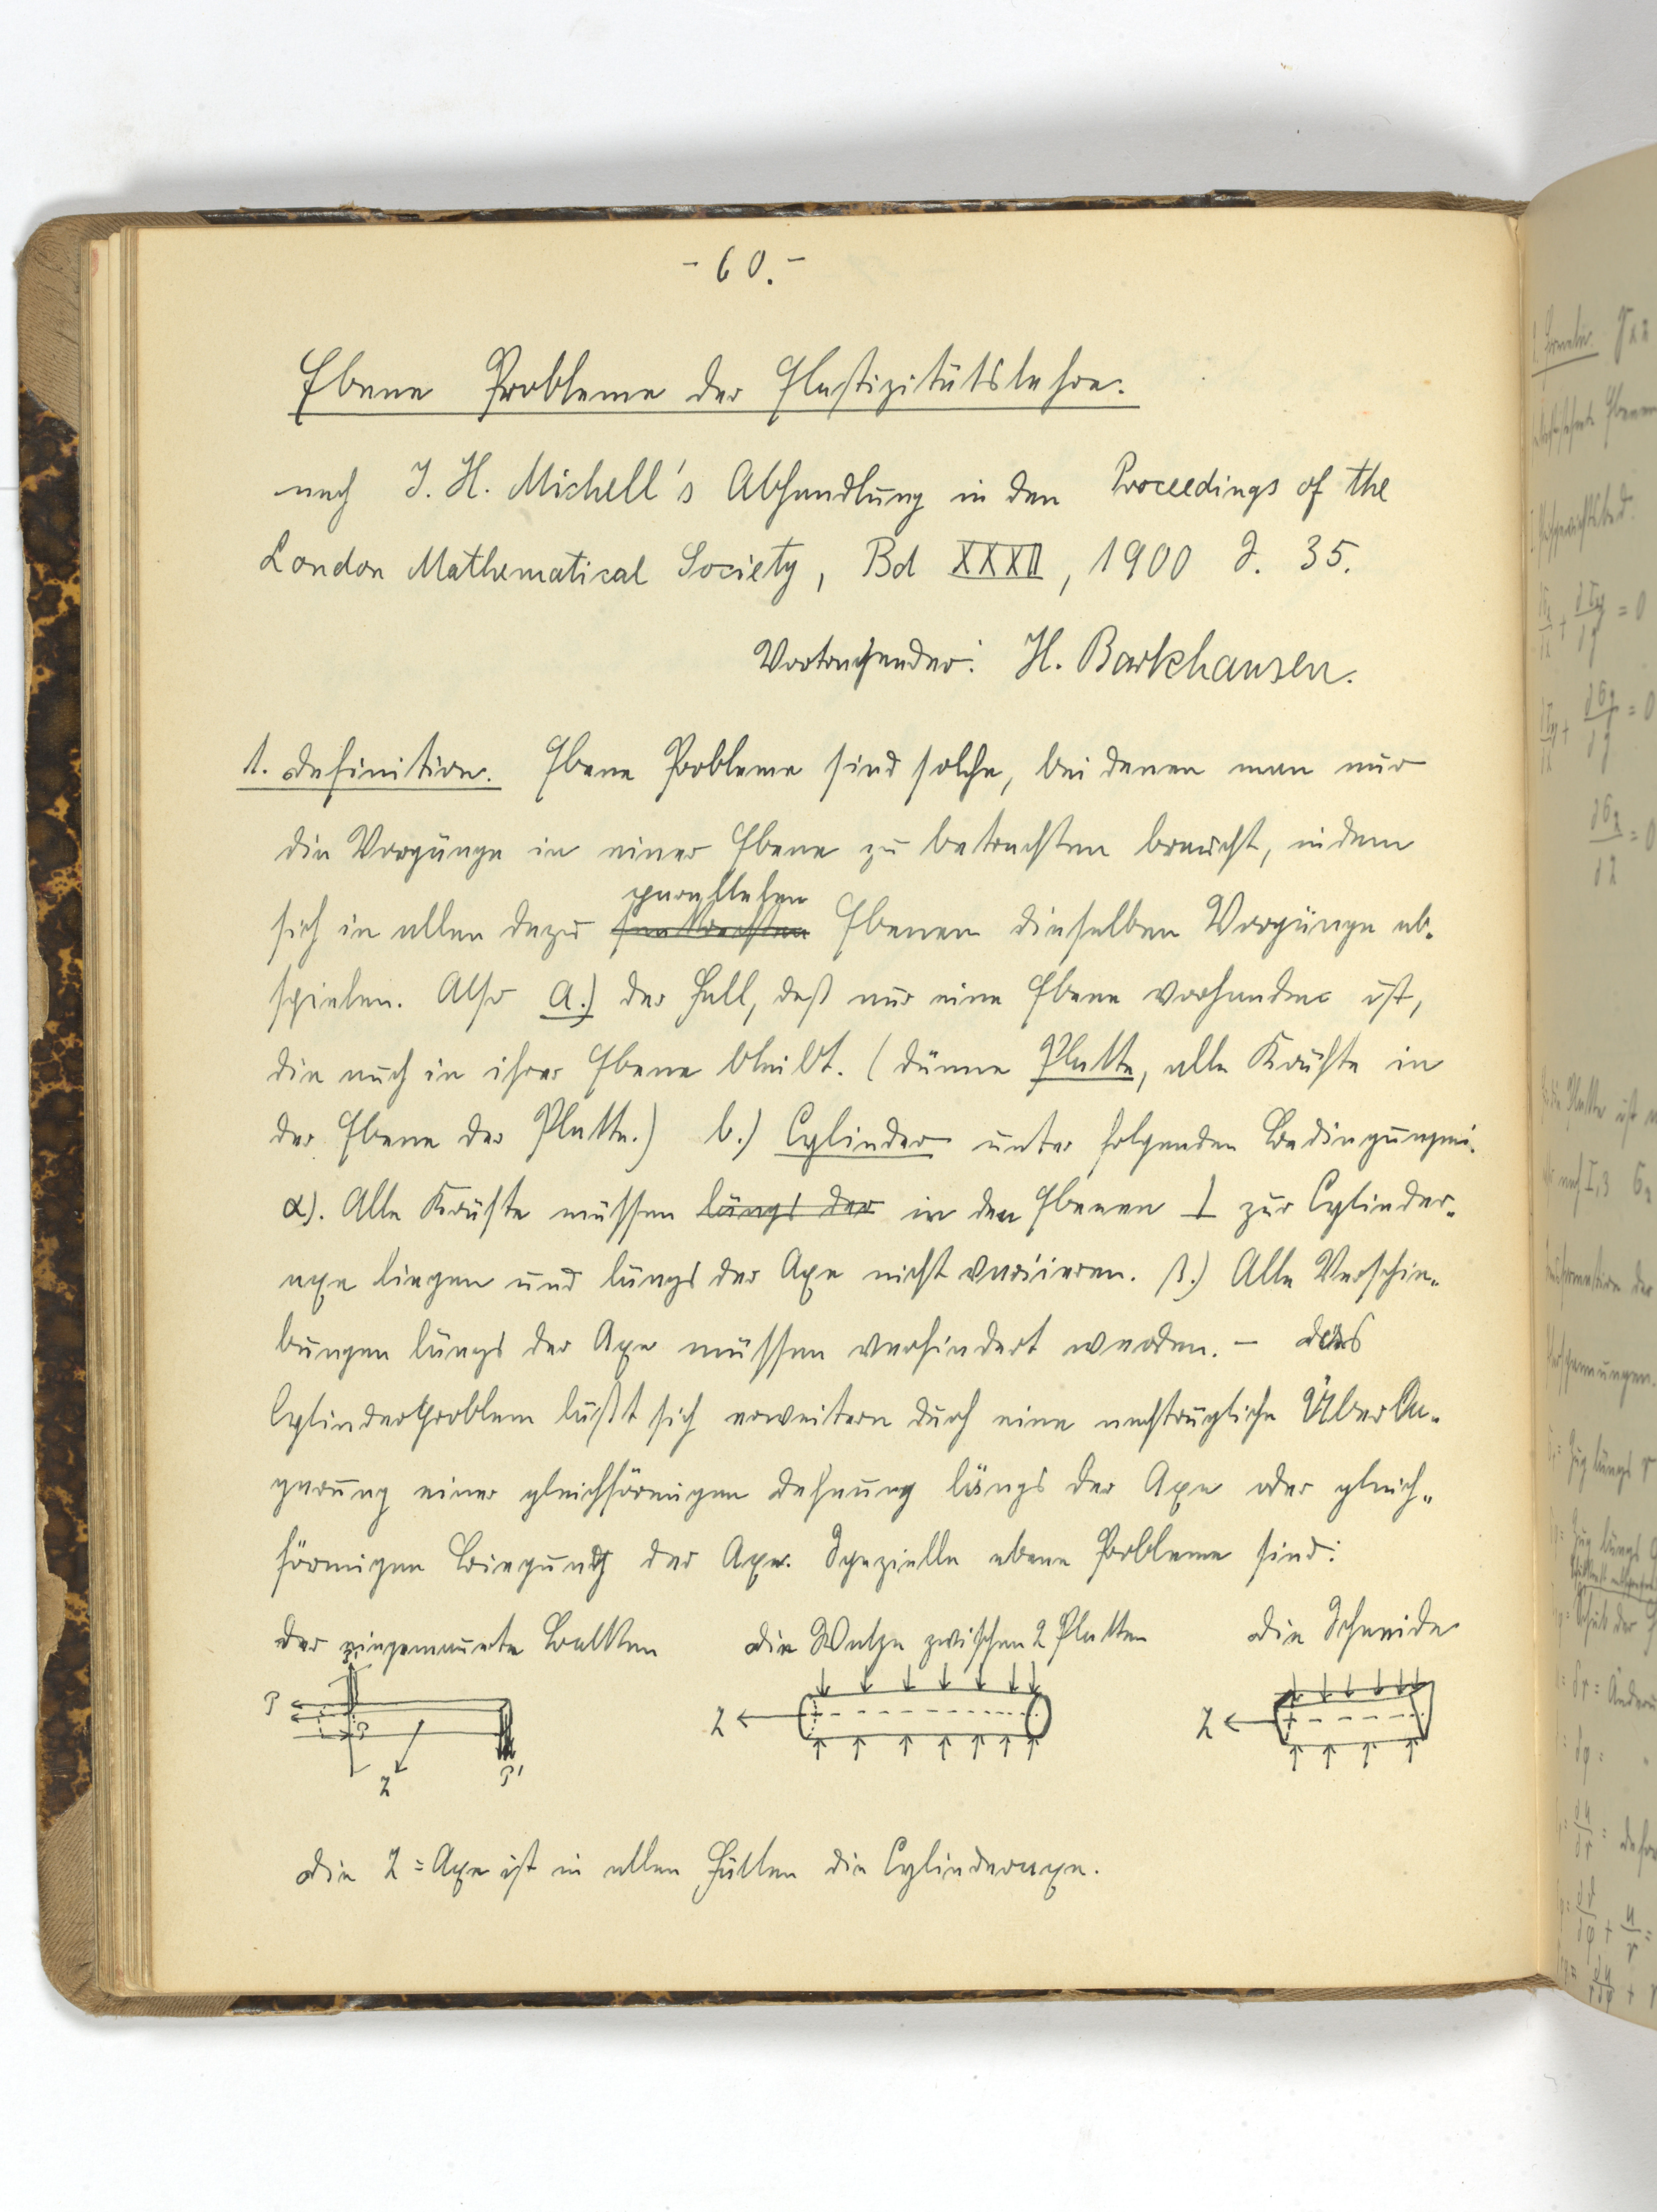 - 60. -
Ebene Probleme der Elastizitätslehre.
nach J. H. Michell's Abhandlung in den Proceedings of the
London Mathematical Society, Bd XXXII, 1900 S. 35.
Vortragender: H. Barkhausen.
1. Definition. Ebene Probleme sind solche, bei denen man nur
die Vorgänge in einer Ebene zu betrachten braucht, indem
parallelen
sich in allen dazu senkrechten Ebenen dieselben Vorgänge ab-
spielen. Also a.) der Fall, daß nur eine Ebene vorhanden ist,
die auch in ihrer Ebene bleibt. (dünne Platte, alle Kräfte in
der Ebene der Platte.) b.) Cylinder unter folgenden Bedingungen:
α). Alle Kräfte müssen längs der in den Ebenen ⊥ zur Cylinder-
axe liegen und längs der Axe nicht variieren. β.) Alle Verschie-
bungen längs der Axe müssen verhindert werden. – Das
Cylinderproblem läßt sich erweitern durch eine nachträgliche Überla-
gerung einer gleichförmigen Dehnung längs der Axe oder gleich-
förmigen Biegung der Axe. Spezielle ebene Probleme sind:
Der eingemauerte Balken Die Walze zwischen 2 Platten Die Schneide
P P Z P'
Z
Z
Die Z = Axe ist in allen Fällen die Cylinderaxe.